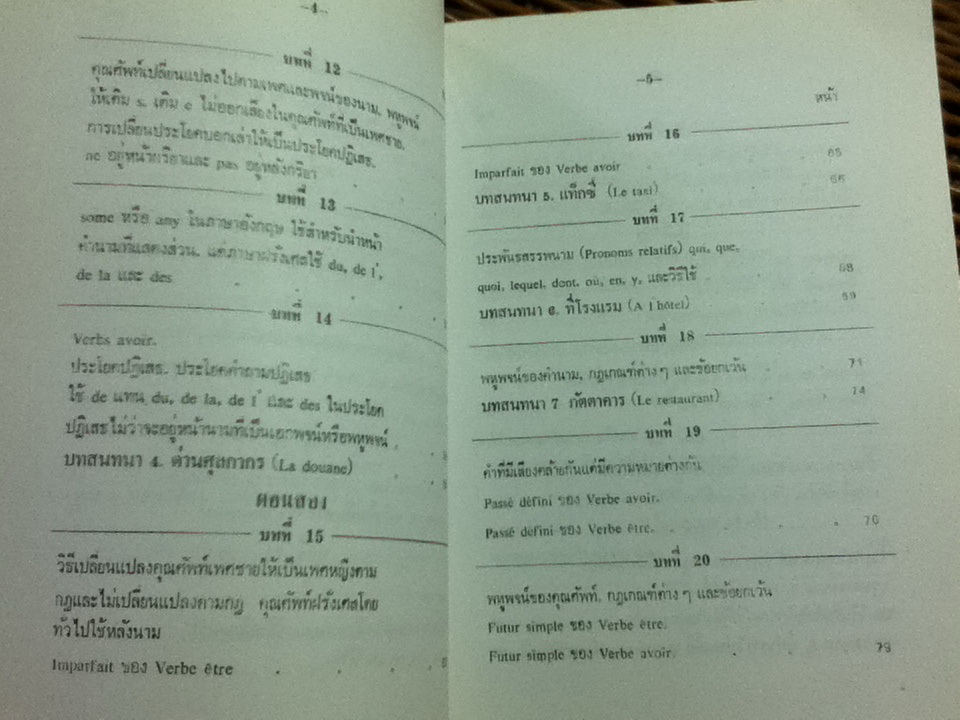 —4—
บทที่ 12
คุณศัพท์เปลี่ยนแปลงไปตามเพศและพจน์ของนาม, พหูพจน์
ให้เติม s. เติม e ไม่ออกเสียงในคุณศัพท์ที่เป็นเพศชาย.
การเปลี่ยนประโยคบอกเล่าให้เป็นประโยคปฏิเสธ.
ne อยู่หน้ากริยาและ pas อยู่หลังกริยา
บทที่ 13
some หรือ any ในภาษาอังกฤษ ใช้สำหรับนำหน้า
คำนามที่แสดงส่วน. แต่ภาษาฝรั่งเศสใช้ du, de l',
de la และ des
บทที่ 14
Verbs avoir.
ประโยคปฏิเสธ. ประโยคคำถามปฏิเสธ
ใช้ de แทน du, de la, de l' และ des ในประโยค
ปฏิเสธไม่ว่าจะอยู่หน้านามที่เป็นเอกพจน์หรือพหูพจน์
บทสนทนา 4. ด่านศุลกากร (La douane)
ตอนสอง
บทที่ 15
วิธีเปลี่ยนแปลงคุณศัพท์เพศชายให้เป็นเพศหญิงตาม
กฎและไม่เปลี่ยนแปลงตามกฎ คุณศัพท์ฝรั่งเศสโดย
ทั่วไปใช้หลังนาม
Imparfait ของ Verbe être
—5—
หน้า
บทที่ 16
Imparfait ของ Verbe avoir 65
บทสนทนา 5. แท็กซี่ (Le taxi) 66
บทที่ 17
ประพันธสรรพนาม (Pronoms relatifs) qui, que,
quoi, lequel, dont, où, en, y, และวิธีใช้ 68
บทสนทนา 6. ที่โรงแรม (A l'hôtel) 69
บทที่ 18
พหูพจน์ของคำนาม, กฎเกณฑ์ต่าง ๆ และข้อยกเว้น 71
บทสนทนา 7 ภัตตาคาร (Le restaurant) 74
บทที่ 19
คำที่มีเสียงคล้ายกันแต่มีความหมายต่างกัน
Passé défini ของ Verbe avoir.
Passé défini ของ Verbe être. 76
บทที่ 20
พหูพจน์ของคุณศัพท์, กฎเกณฑ์ต่าง ๆ และข้อยกเว้น
Futur simple ของ Verbe être.
Futur simple ของ Verbe avoir. 79